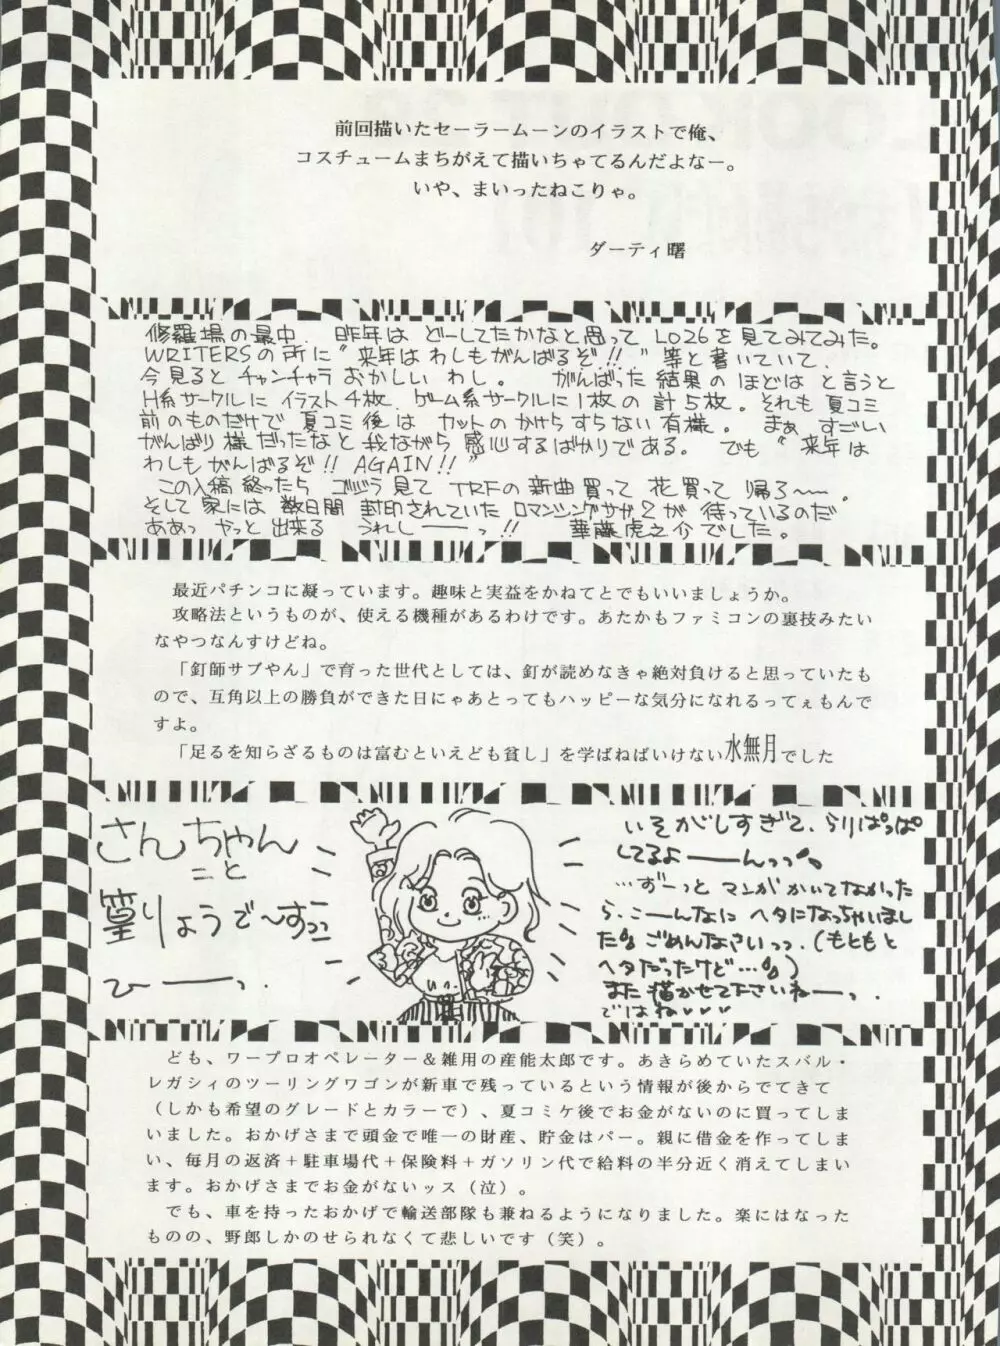 前回描いたセーラームーンのイラストで俺、
コスチュームまちがえて描いちゃてるんだよなー。
いや、まいったねこりゃ。
ダーティ曙
修羅場の最中、昨年は どーしてたかなと思って LO26を見てみてみた。
WRITERSの所に“来年は わしもがんばるぞ!!”等と書いていて、
今見ると チャンチャラ おかしい わし。 がんばった 結果の ほどは と言うと
H系サークルに イラスト4枚、ゲーム系サークルに1枚の 計5枚。それも 夏コミ
前のものだけで 夏コミ後は カットの かけらすらない有様。 まぁ すごしい
がんばり様だったなと 我ながら 感心するばかりである。 でも“来年は
わしもがんばるぞ!! AGAIN!!”
この入稿 終ったら ゴジラ見て TRFの新曲買って 花買って 帰ろ〜〜。
そして 家には 数日間 封印されていた ロマンシングサガ2が 待っているのだ
ああっ やっと出来る うれしーーっ!! 華藤虎之介でした。
最近パチンコに凝っています。趣味と実益をかねてとでもいいましょうか。
攻略法というものが、使える機種があるわけです。あたかもファミコンの裏技みたい
なやつなんすけどね。
「釘師サブやん」で育った世代としては、釘が読めなきゃ絶対負けると思っていたも
ので、互角以上の勝負ができた日にゃあとってもハッピーな気分になれるってぇもんで
すよ。
「足るを知らざるものは富むといえども貧し」を学ばねばいけない水無月でした
さんちゃん
こと
篁りょうで〜すっっ
ひーーっ.
いそがしすぎて、らりぱっぱ
してるよーーんっっ
…ずーっと マンガかいてなかった
ら、こーんなに ヘタになっちゃいまし
た ごめんなさいっっ.(もともと
ヘタだったけど…)
また 描かせて下さいねーーっ.
ではね♥♥♥
ども、ワープロオペレーター＆雑用の産能太郎です。あきらめていたスバル・
レガシィのツーリングワゴンが新車で残っているという情報が後からでてきて
（しかも希望のグレードとカラーで）、夏コミケ後でお金がないのに買ってしま
いました。おかげさまで頭金で唯一の財産、貯金はパー。親に借金を作ってしま
い、毎月の返済＋駐車場代＋保険料＋ガソリン代で給料の半分近く消えてしまい
ます。おかげさまでお金がないッス（泣）。
でも、車を持ったおかげで輸送部隊も兼ねるようになりました。楽にはなった
ものの、野郎しかのせられなくて悲しいです（笑）。